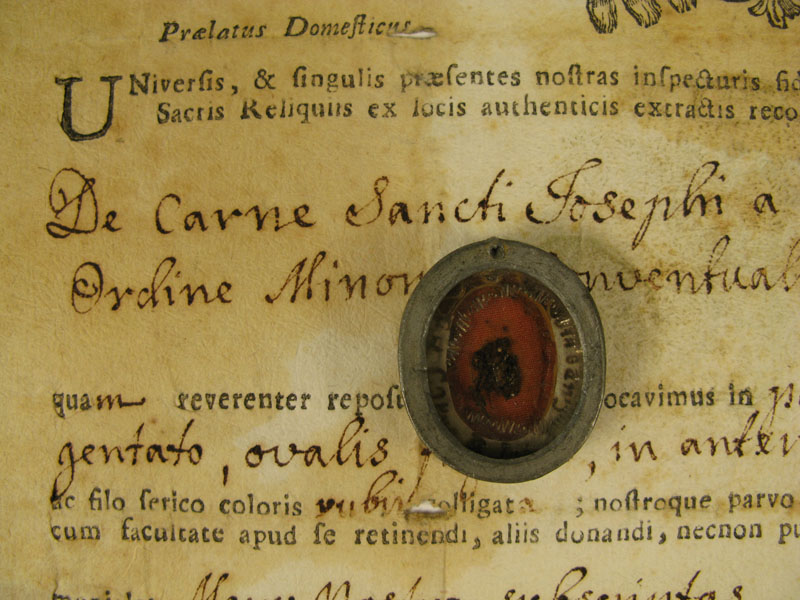 Prælatus Domeſticus
UNiverſis, & ſingulis præſentes noſtras inſpecturis fid
Sacris Reliquiis ex locis authenticis extractis reco
De Carne Sancti Josephi a
Ordine Minor nventual
quam reverenter repoſi ocavimus in
gentato, ovalis , in anter
ac filo ſerico coloris rubi colligata ; noſtroque parvo
cum facultate apud ſe retinendi, aliis donandi, necnon pu
subscriptas